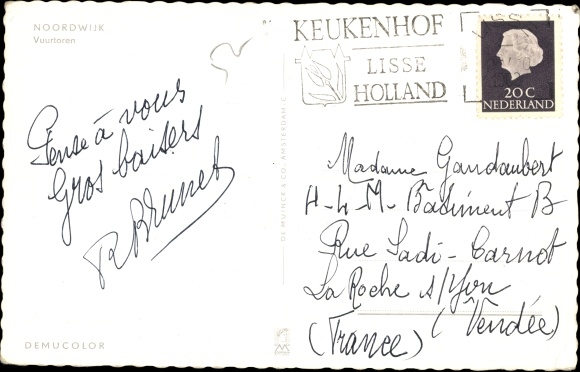 NOORDWIJK
Vuurtoren
Pense à vous
Gros baisers
R Brunet
DEMUCOLOR
DE MUINCK & CO. AMSTERDAM-C
KEUKENHOF
LISSE
HOLLAND
LISSE
20 C
NEDERLAND
Madame Gaudaubert
H-L-M- Batiment B
Rue Sadi-Carnot
La Roche s/Yon
(Vendée)
(France)